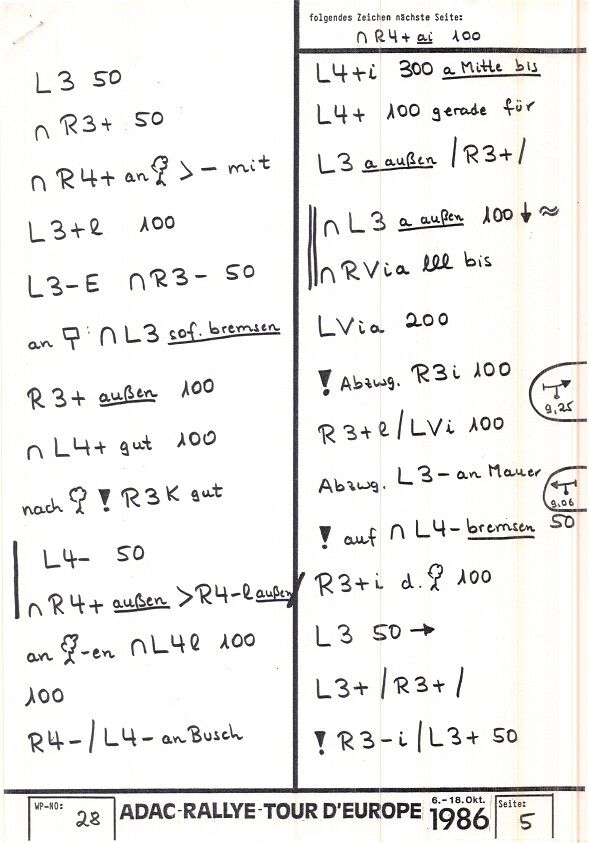 L3 50
∩ R3+ 50
∩ R4+ an > – mit
L3+l 100
L3-E ∩R3- 50
an ∩ L3 sof. bremsen
R3+ außen 100
∩ L4+ gut 100
nach ! R3K gut
L4- 50
∩ R4+ außen > R4-l außen /
an -en ∩L4l 100
100
R4- / L4- an Busch
folgendes Zeichen nächste Seite:
∩ R4+ ai 100
L4+i 300 a Mitte bis
L4+ 100 gerade für
L3 a außen / R3+ /
∩ L3 a außen 100 ↓ ≈
∩ RVia lll bis
LVia 200
! Abzwg. R3i 100
9,25
R3+l / LVi 100
Abzwg. L3- an Mauer
9,06
! auf ∩ L4- bremsen 50
R3+i d. 100
L3 50 →
L3+ / R3+ /
! R3-i / L3+ 50
WP-NO: 28
ADAC-RALLYE-TOUR D'EUROPE
6.-18.Okt.
1986
Seite: 5